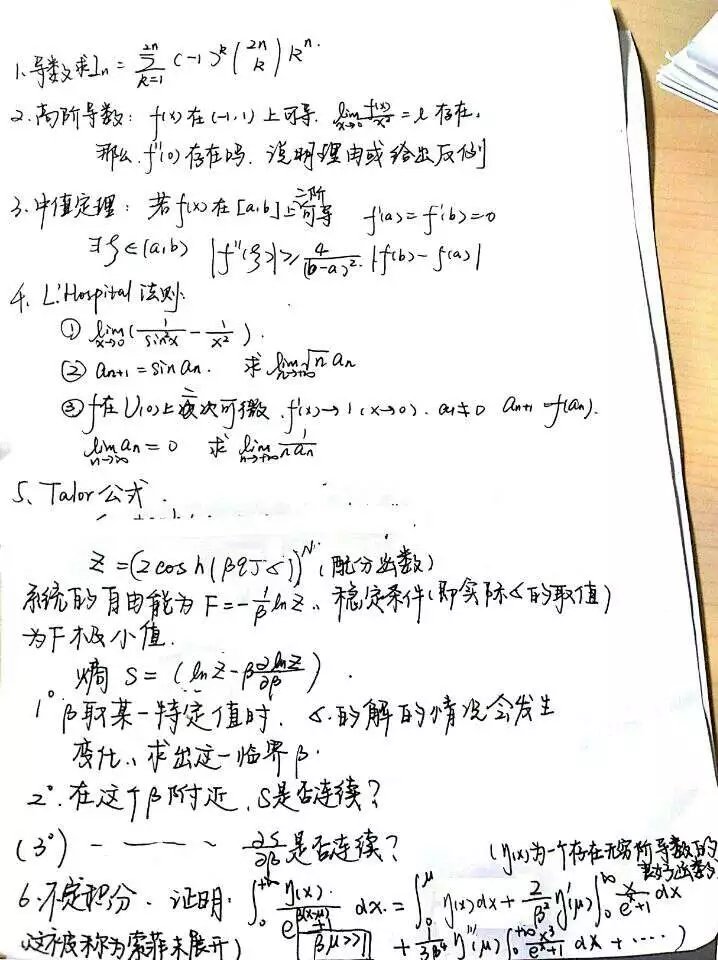 1. 导数求 Iₙ = Σ_{k=1}^{2n} (-1)^k (2n k) k^n.
2. 高阶导数: f(x) 在 (-1,1) 上可导. lim_{x→0} f(x)/x² = l 存在,
那么 f''(0) 存在吗. 说明理由或给出反例
3. 中值定理: 若 f(x) 在 [a,b] 上二阶可导 f'(a) = f'(b) = 0
∃ξ∈(a,b) |f''(ξ)| ≥ 4/(b-a)² · |f(b) - f(a)|
4. L'Hospital 法则:
① lim_{x→0} (1/sin²x - 1/x²).
② aₙ₊₁ = sin aₙ. 求 lim_{n→+∞} √n aₙ
③ f在 U(0)上二次可微. f'(x)→1 (x→0). a₁≠0 aₙ₊₁ = f(aₙ).
lim_{n→∞} aₙ = 0 求 lim_{n→+∞} 1/(n aₙ)
5、Talor 公式.
Z = (2cosh(βqJs))^N (配分函数)
系统的自由能为 F = -1/β lnZ. 稳定条件(即实际s的取值)
为F极小值.
熵 S = (lnZ - β ∂lnZ/∂β).
1° β取某一特定值时, s的解的情况会发生
变化. 求出这一临界β.
2°. 在这个β附近, S是否连续?
(3°) — — — ∂S/∂β 是否连续?
(η(x)为一个存在无穷阶导数的
函数)
6.不定积分. 证明: ∫₀^{+∞} η(x)/(e^{β(x-μ)}+1) dx = ∫₀^μ η(x)dx + 2/β² η'(μ) ∫₀^∞ x/(e^x+1) dx
(这被称为索菲末展开) βμ>>1 + 1/(3β⁴) η'''(μ) ∫₀^{+∞} x³/(e^x+1) dx + ····)